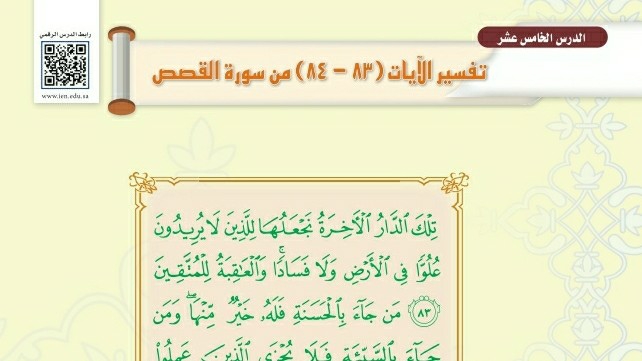 رابط الدرس الرقمي
www.ien.edu.sa
الدرس الخامس عشر
تفسير الآيات (٨٣ – ٨٤) من سورة القصص
تِلْكَ ٱلدَّارُ ٱلْأَخِرَةُ نَجْعَلُهَا لِلَّذِينَ لَا يُرِيدُونَ
عُلُوًّا فِي ٱلْأَرْضِ وَلَا فَسَادًا ۚ وَٱلْعَٰقِبَةُ لِلْمُتَّقِينَ
٨٣ مَن جَآءَ بِٱلْحَسَنَةِ فَلَهُۥ خَيْرٌ مِّنْهَا ۖ وَمَن
جَآءَ بِٱلسَّيِّئَةِ فَلَا يُجْزَى ٱلَّذِينَ عَمِلُوا۟